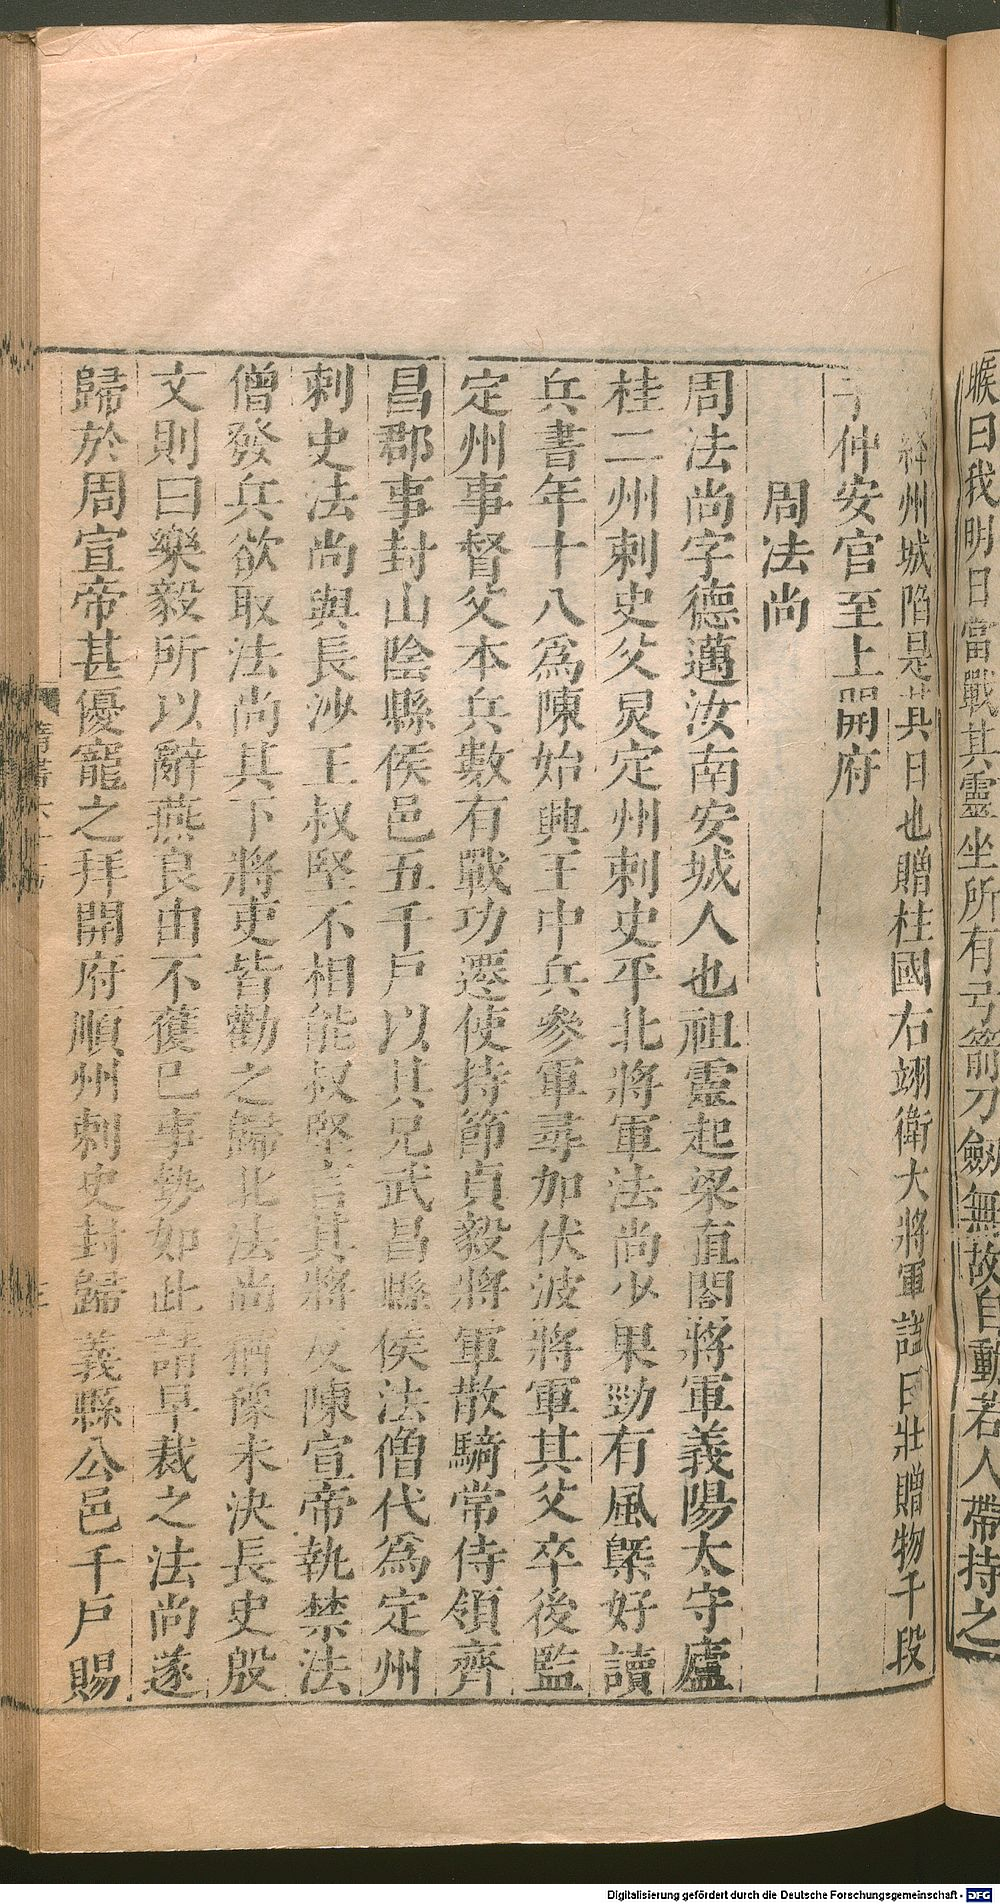 㑋曰我明日當戰其靈坐所有弓箭刀劒無故自動若人帶持之
絳州城陷是其日也贈柱國右翊衛大將軍謚曰壯贈物千段
子仲安官至上開府
周法尚
周法尚字德邁汝南安城人也祖靈起梁直閣將軍義陽太守廬
桂二州刺史父炅定州刺史平北將軍法尚少果勁有風槩好讀
兵書年十八爲陳始興王中兵參軍尋加伏波將軍其父卒後監
定州事督父本兵數有戰功遷使持節貞毅將軍散騎常侍領齊
昌郡事封山陰縣侯邑五千戶以其兄武昌縣侯法僧代爲定州
刺史法尚與長沙王叔堅不相能叔堅言其將反陳宣帝執禁法
僧發兵欲取法尚其下將吏皆勸之歸北法尚猶豫未決長史殷
文則曰樂毅所以辭燕良由不獲已事勢如此請早裁之法尚遂
歸於周宣帝甚優寵之拜開府順州刺史封歸義縣公邑千戶賜
Digitalisierung gefördert durch die Deutsche Forschungsgemeinschaft - DFG